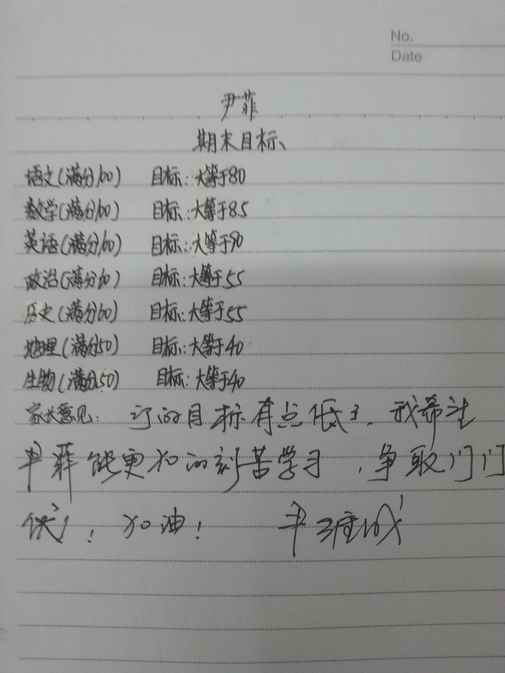 No.
Date
尹菲
期末目标、
语文(满分100) 目标:大等于80
数学(满分100) 目标:大等于85
英语(满分100) 目标:大等于90
政治(满分60) 目标:大等于55
历史(满分60) 目标:大等于55
地理(满分50) 目标:大等于40
生物(满分50) 目标:大等于40
家长意见: 订的目标有点低了,我希望
尹菲能更加的刻苦学习,争取门门
优!加油! 尹